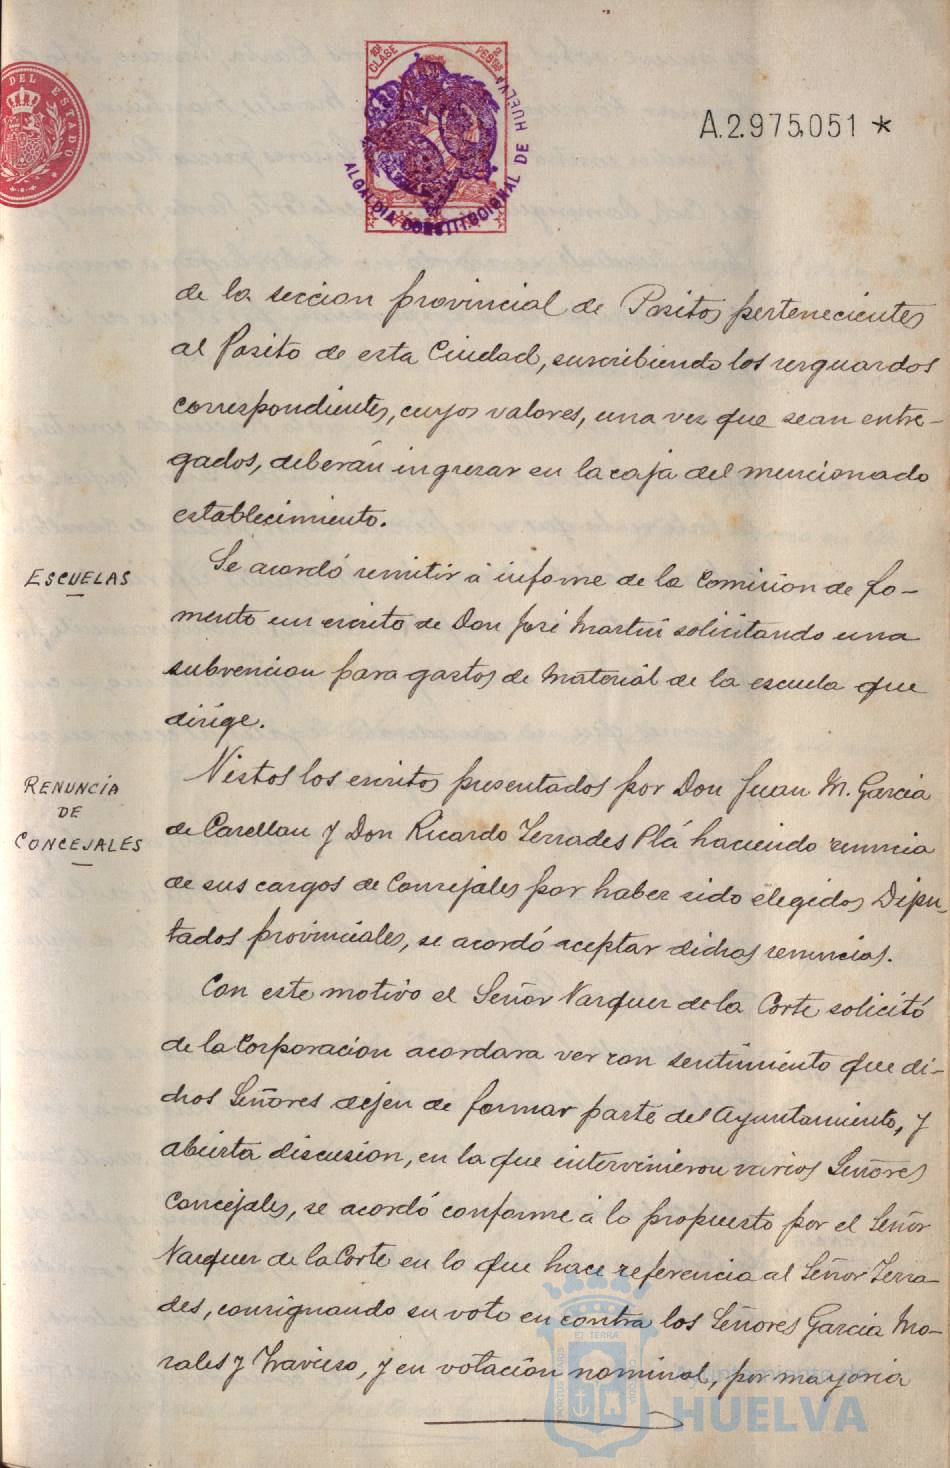 DEL ESTADO
10ª CLASE
2 PESETAS
ALCALDÍA CONSTITUCIONAL DE HUELVA
A.2.975,051 *
de la seccion provincial de Positos pertenecientes
al Posito de esta Ciudad, suscribiendo los resguardos
correspondientes, cuyos valores, una vez que sean entre-
gados, deberán ingresar en la caja del mencionado
establecimiento.
ESCUELAS
Se acordó remitir á informe de la Comision de fo-
mento un escrito de Don José Martin solicitando una
subvencion para gastos de material de la escuela que
dirige.
RENUNCIA
DE
CONCEJALES
Vistos los escritos presentados por Don Juan M. Garcia
de Carellan y Don Ricardo Terrades Plá haciendo renuncia
de sus cargos de Concejales por haber sido elegidos Dipu-
tados provinciales, se acordó aceptar dichas renuncias.
Con este motivo el Señor Vazquez de la Corte solicitó
de la Corporacion acordara ver con sentimiento que di-
chos Señores dejen de formar parte del Ayuntamiento, y
abierta discusion, en la que intervinieron varios Señores
Concejales, se acordó conforme á lo propuesto por el Señor
Vazquez de la Corte en lo que hace referencia al Señor Terra-
des, consignando su voto en contra los Señores Garcia Mo-
rales y Travieso, y en votación nominal, por mayoria
ET TERRA
Ayuntamiento de
HUELVA